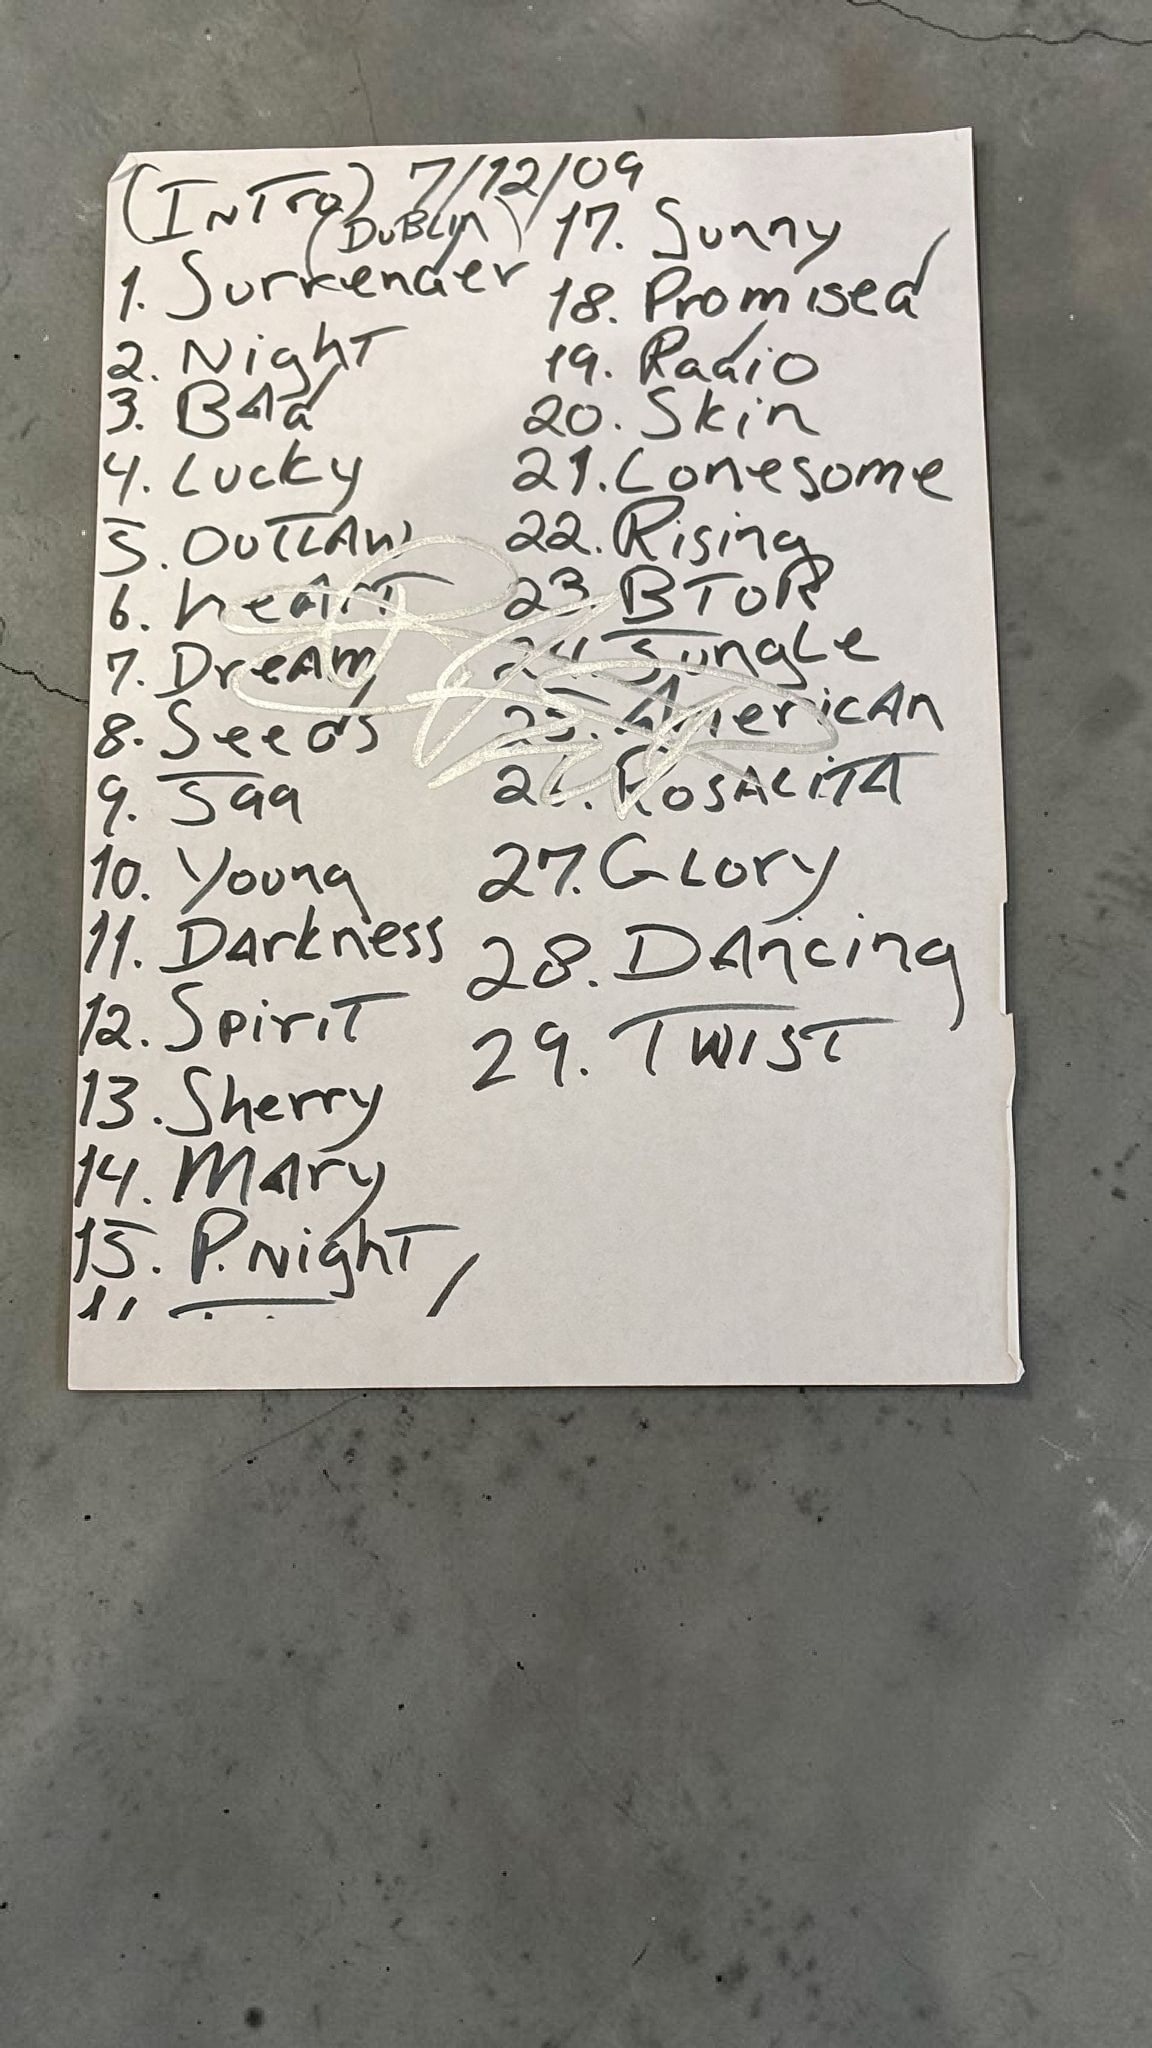 (INTro) 7/12/09
(DUBLIN)
1. Surrender
2. Night
3. BAd
4. Lucky
5. OUTLAW
6. heArT
7. DreAm
8. Seeds
9. J99
10. Young
11. DArkness
12. SpiriT
13. Sherry
14. MAry
15. P. NighT
17. Sunny
18. Promised
19. Radio
20. Skin
21. Lonesome
22. Rising
23. BTOR
24. JungLe
25. AmericAn
26. RosALiTA
27. GLory
28. DAncing
29. TWIST